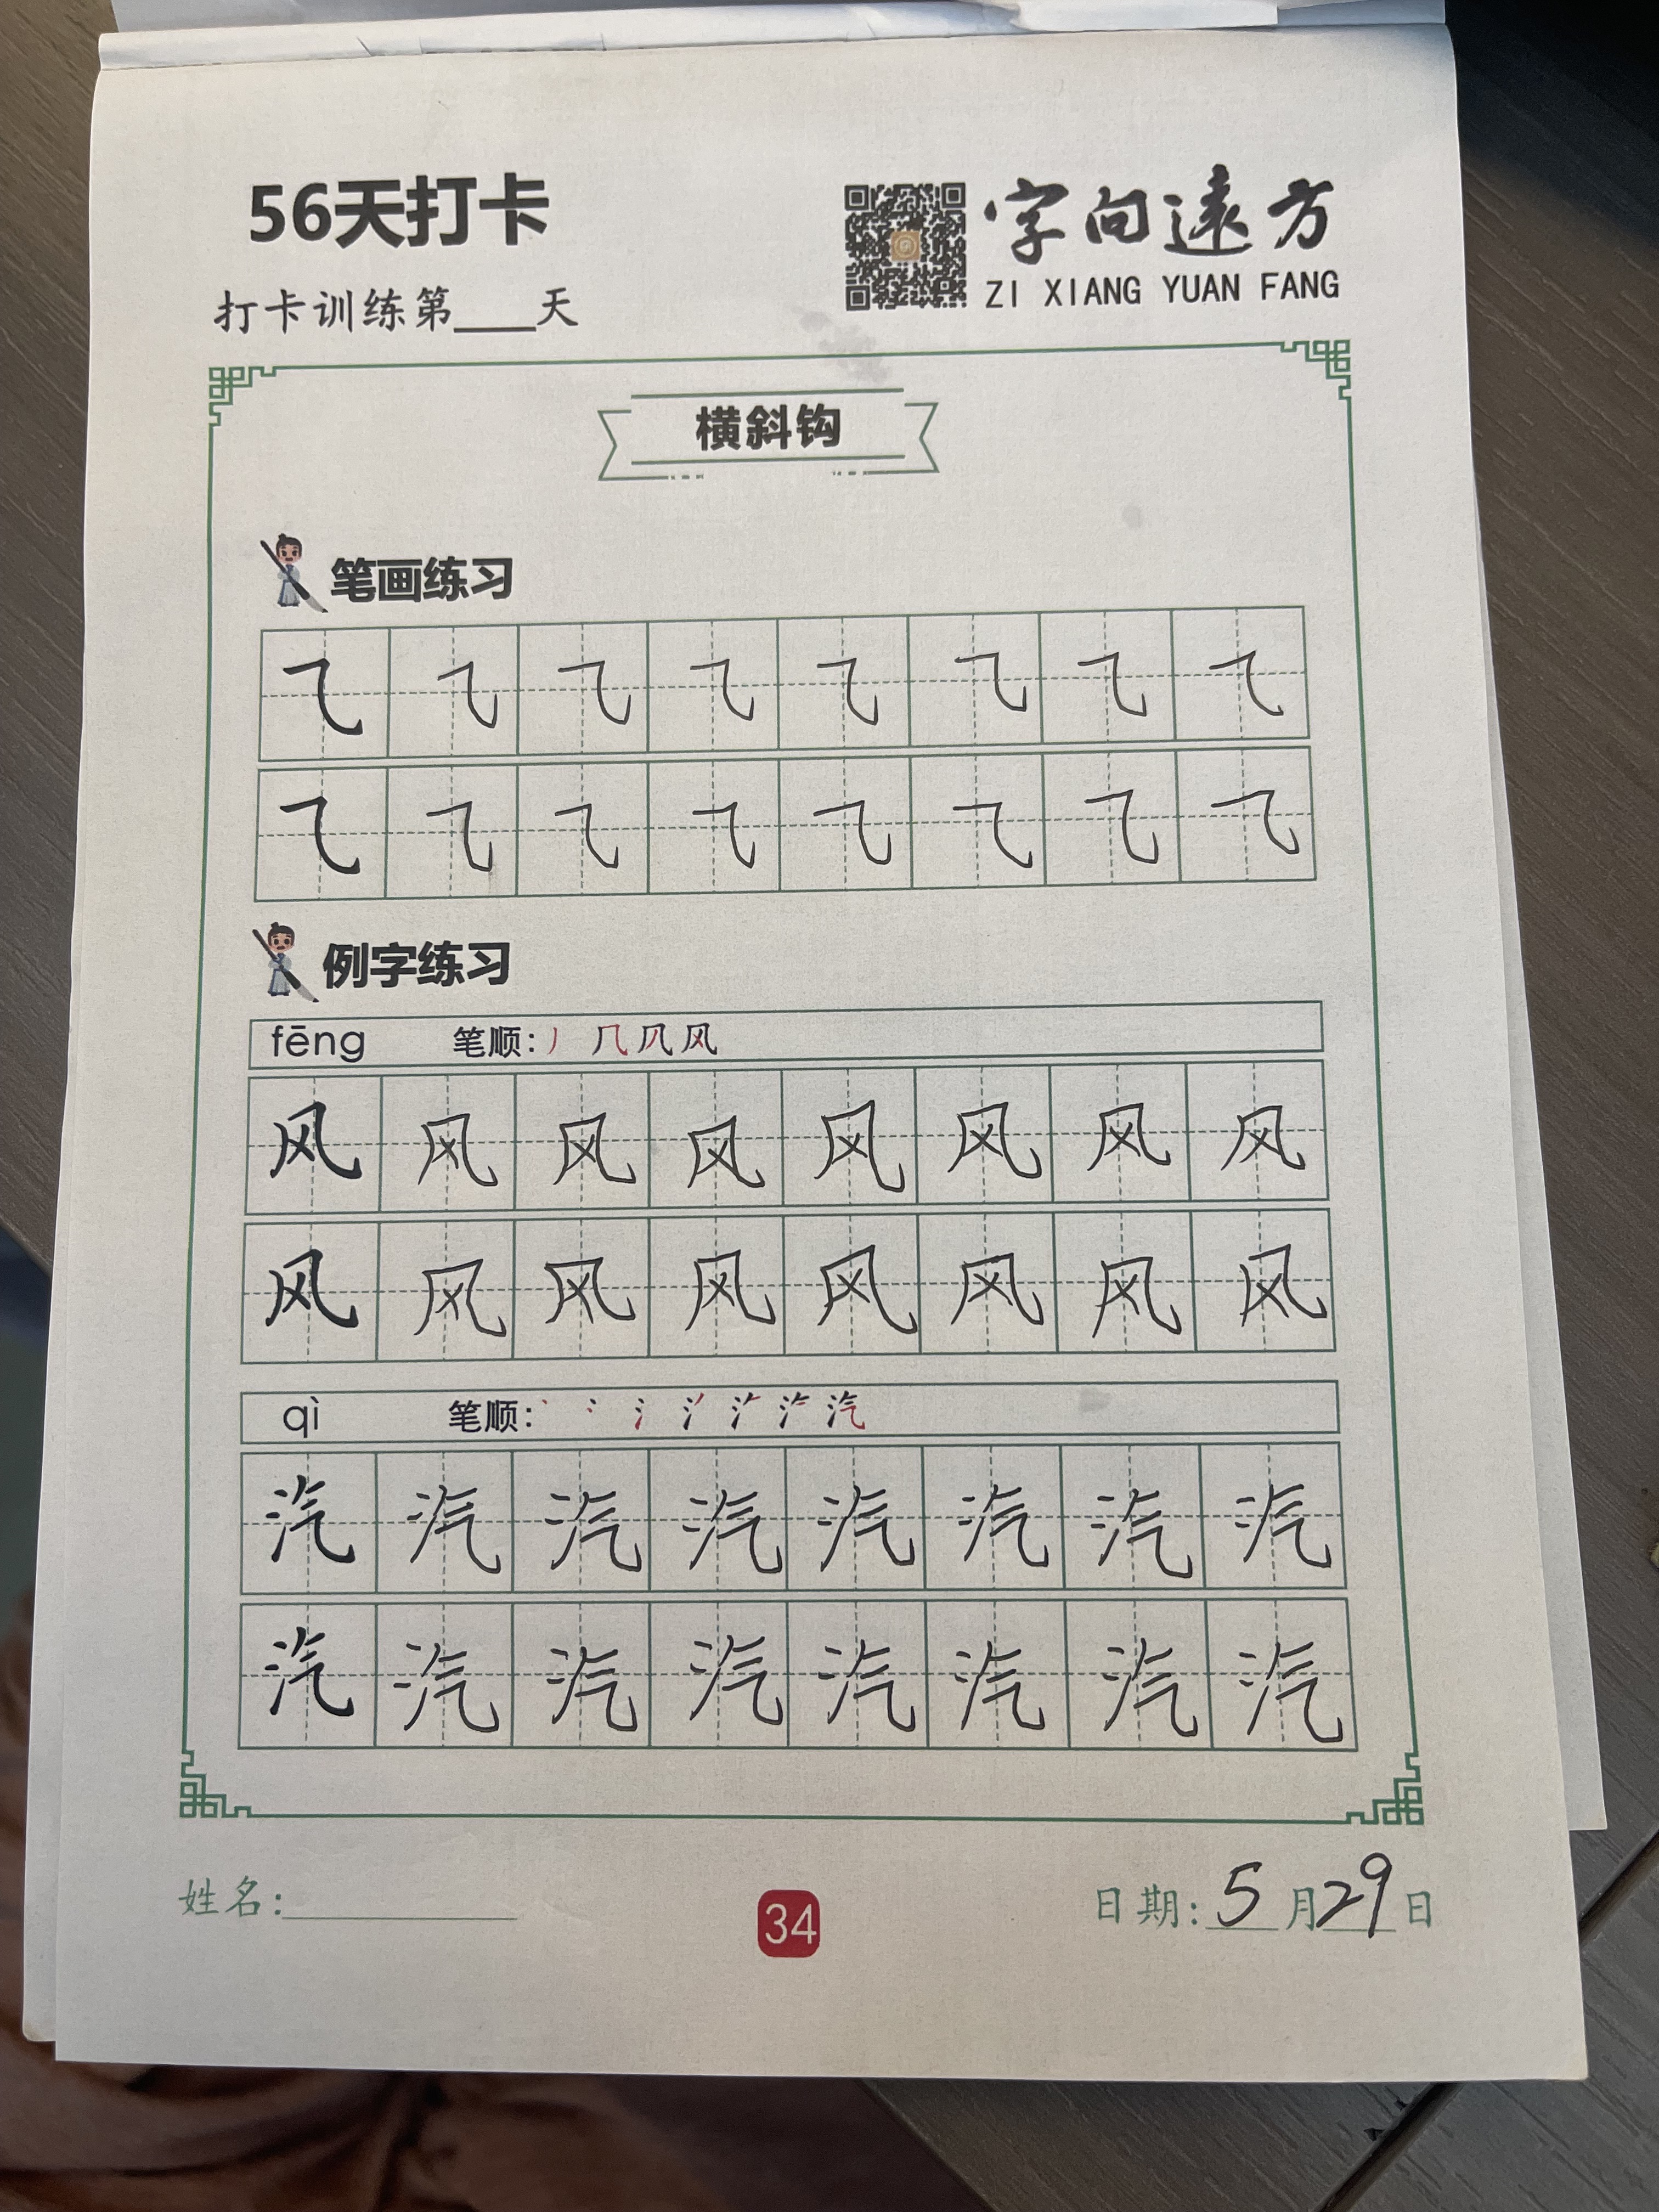 56天打卡
字向遠方
ZI XIANG YUAN FANG
打卡训练第____天
横斜钩
笔画练习
⺄ ⺄ ⺄ ⺄ ⺄ ⺄ ⺄ ⺄
⺄ ⺄ ⺄ ⺄ ⺄ ⺄ ⺄ ⺄
例字练习
fēng 笔顺: 丿 几 凨 风
风 风 风 风 风 风 风 风
风 风 风 风 风 风 风 风
qì 笔顺:
汽 汽 汽 汽 汽 汽 汽 汽
汽 汽 汽 汽 汽 汽 汽 汽
姓名:
34
日期: 5 月 29 日